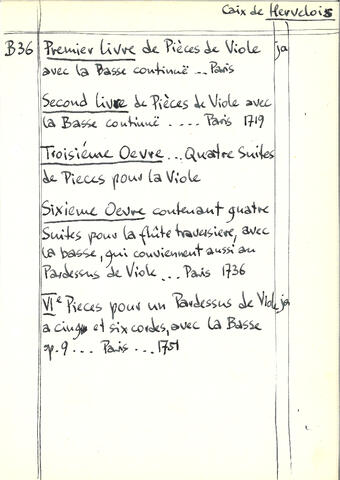 Caix de Hervelois
B36 Premier Livre de Pièces de Viole ja
avec la Basse continuë ... Paris
Second livre de Pièces de Viole avec
la Basse continuë .... Paris 1719
Troisiéme Oevre ... Quatre Suites
de Pieces pour la Viole
Sixieme Oevre contenant quatre
Suites pour la flûte traversiere, avec
la basse, qui conviennent aussi au
Pardessus de Viole ... Paris 1736
VIe Pieces pour un Pardessus de Viole ja
a cinq et six cordes, avec la Basse
op. 9 ... Paris ... 1751